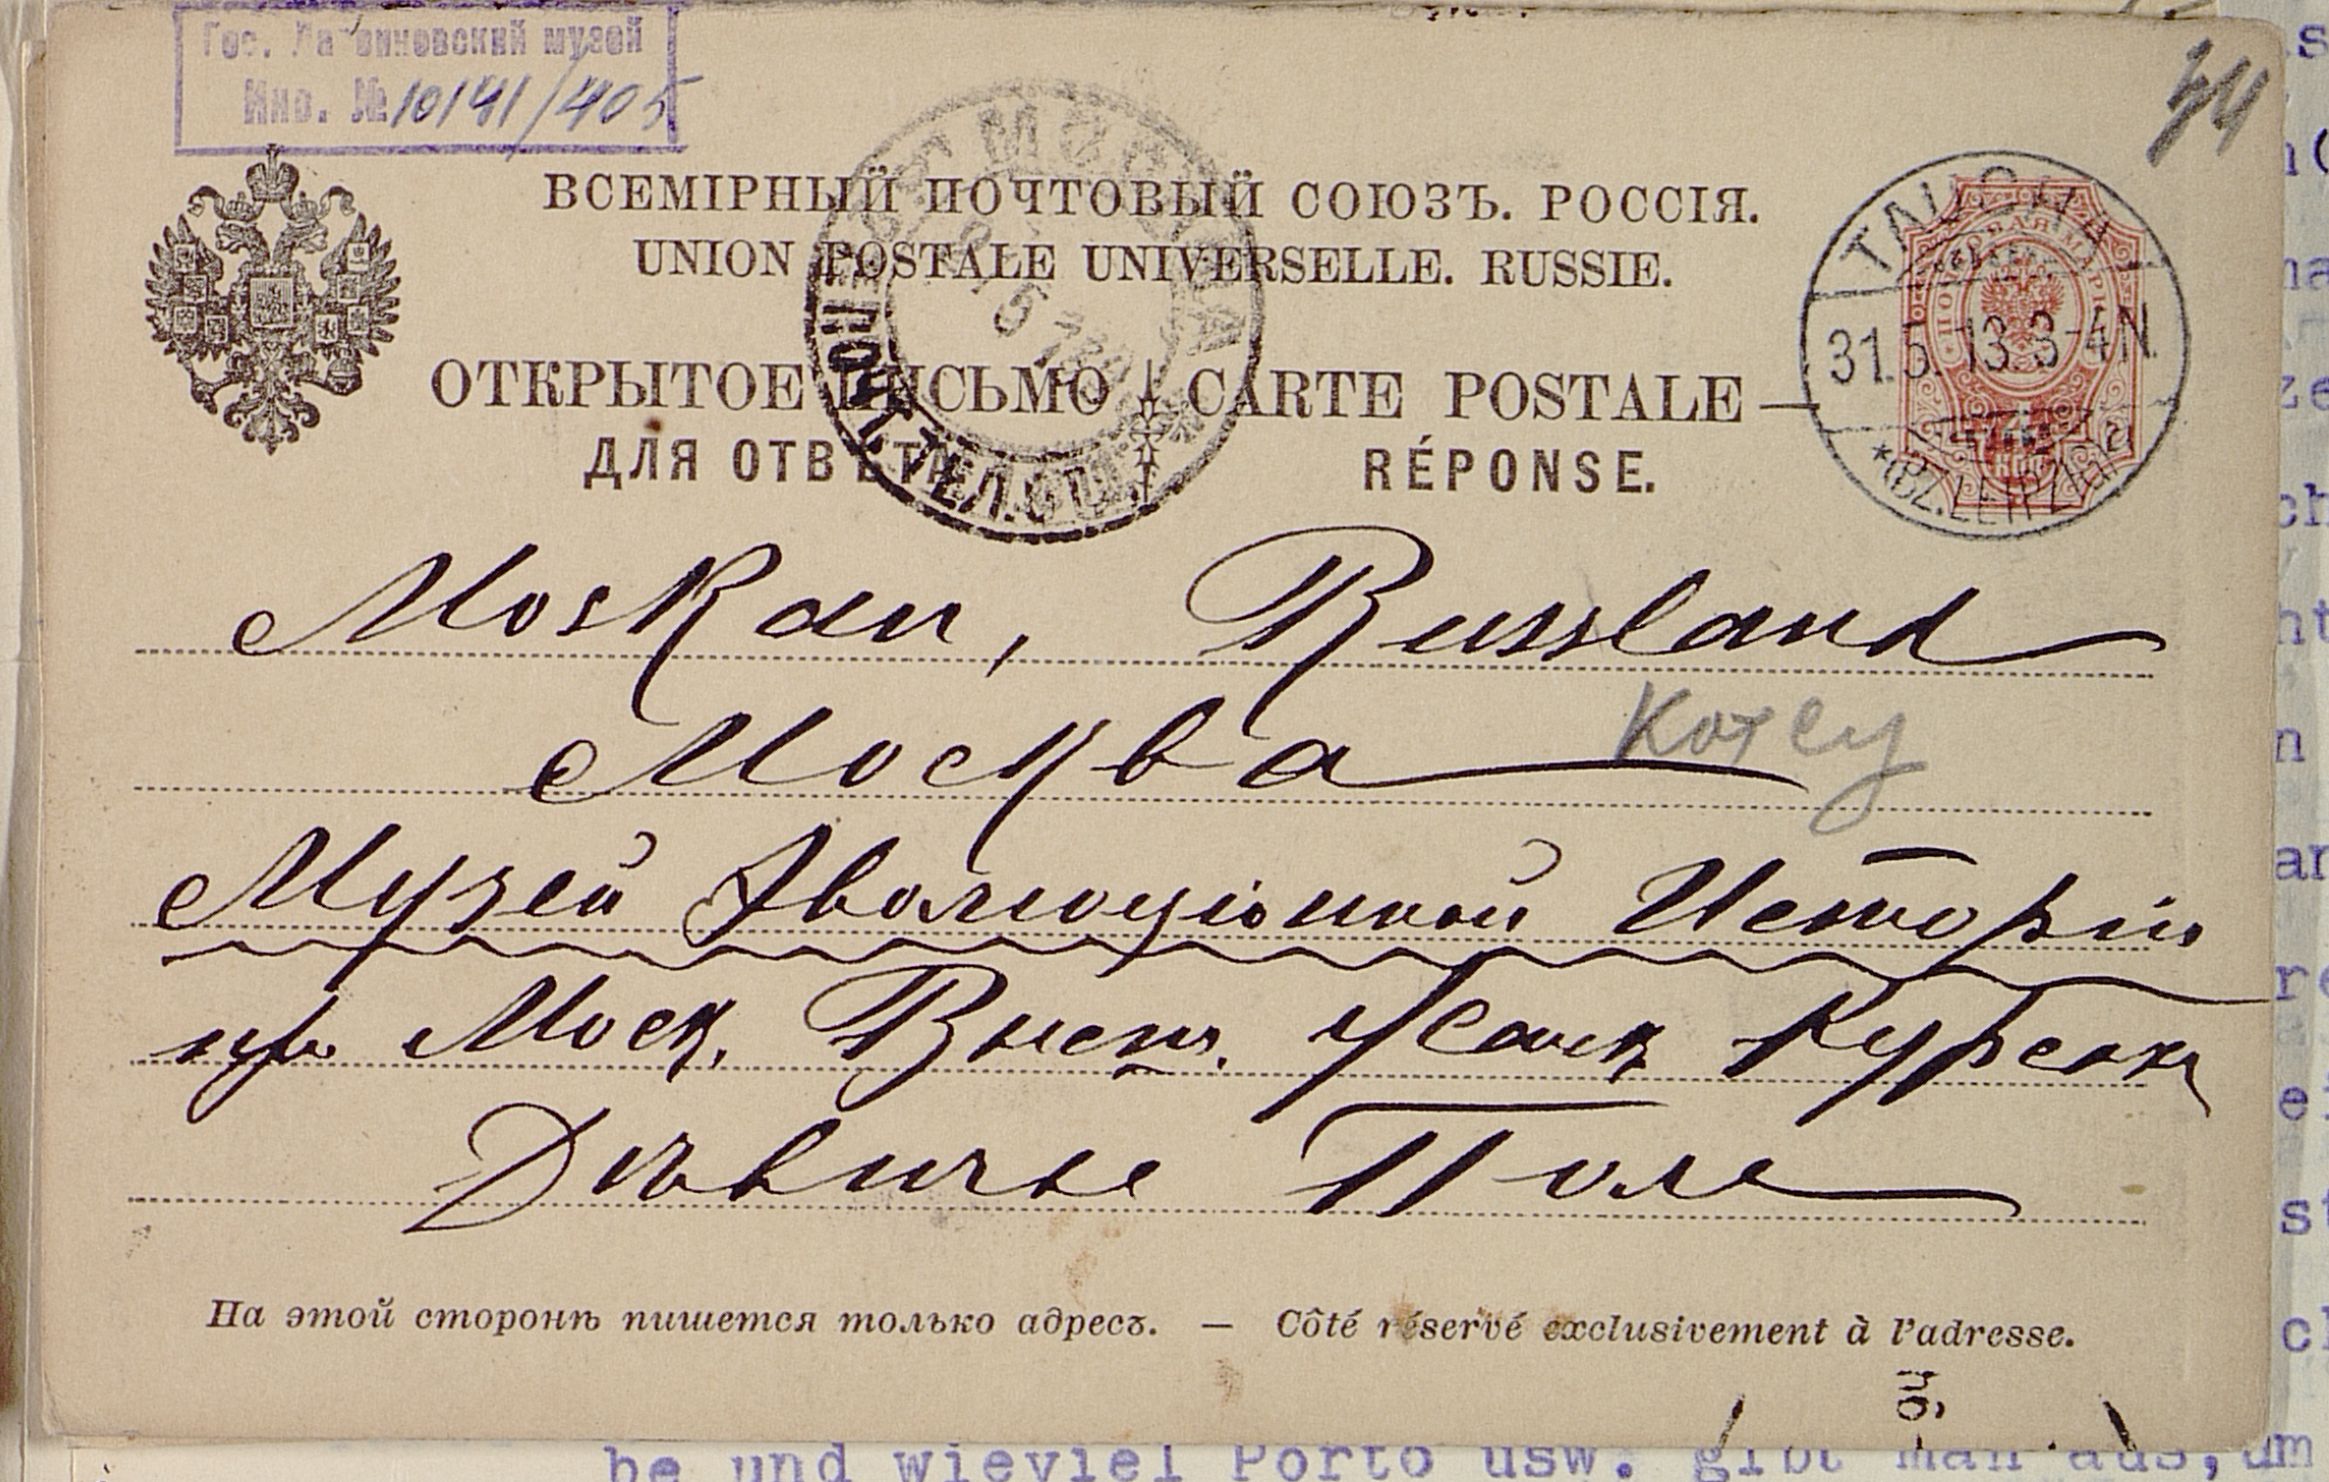 Гос. Дарвиновский музей
Инв. № 10141/405
34
ВСЕМІРНЫЙ ПОЧТОВЫЙ СОЮЗЪ. РОССІЯ.
UNION POSTALE UNIVERSELLE. RUSSIE.
ОТКРЫТОЕ ПИСЬМО CARTE POSTALE
ДЛЯ ОТВѢТА RÉPONSE.
МОСКВА
ПОЧТ. ТЕЛ.
TAUCHA
31.5.13.3-4N.
*(BZ. LEIPZIG)
ПОЧТОВАЯ МАРКА
Moskau, Russland
Москва
Котсу
Музей Эволюціонной Исторіи
пр. Моск. Высш. Женск. Курсахъ
Дѣвичье Поле
На этой сторонѣ пишется только адресъ. — Côté réservé exclusivement à l'adresse.
be und wieviel Porto usw. gibt man aus, um